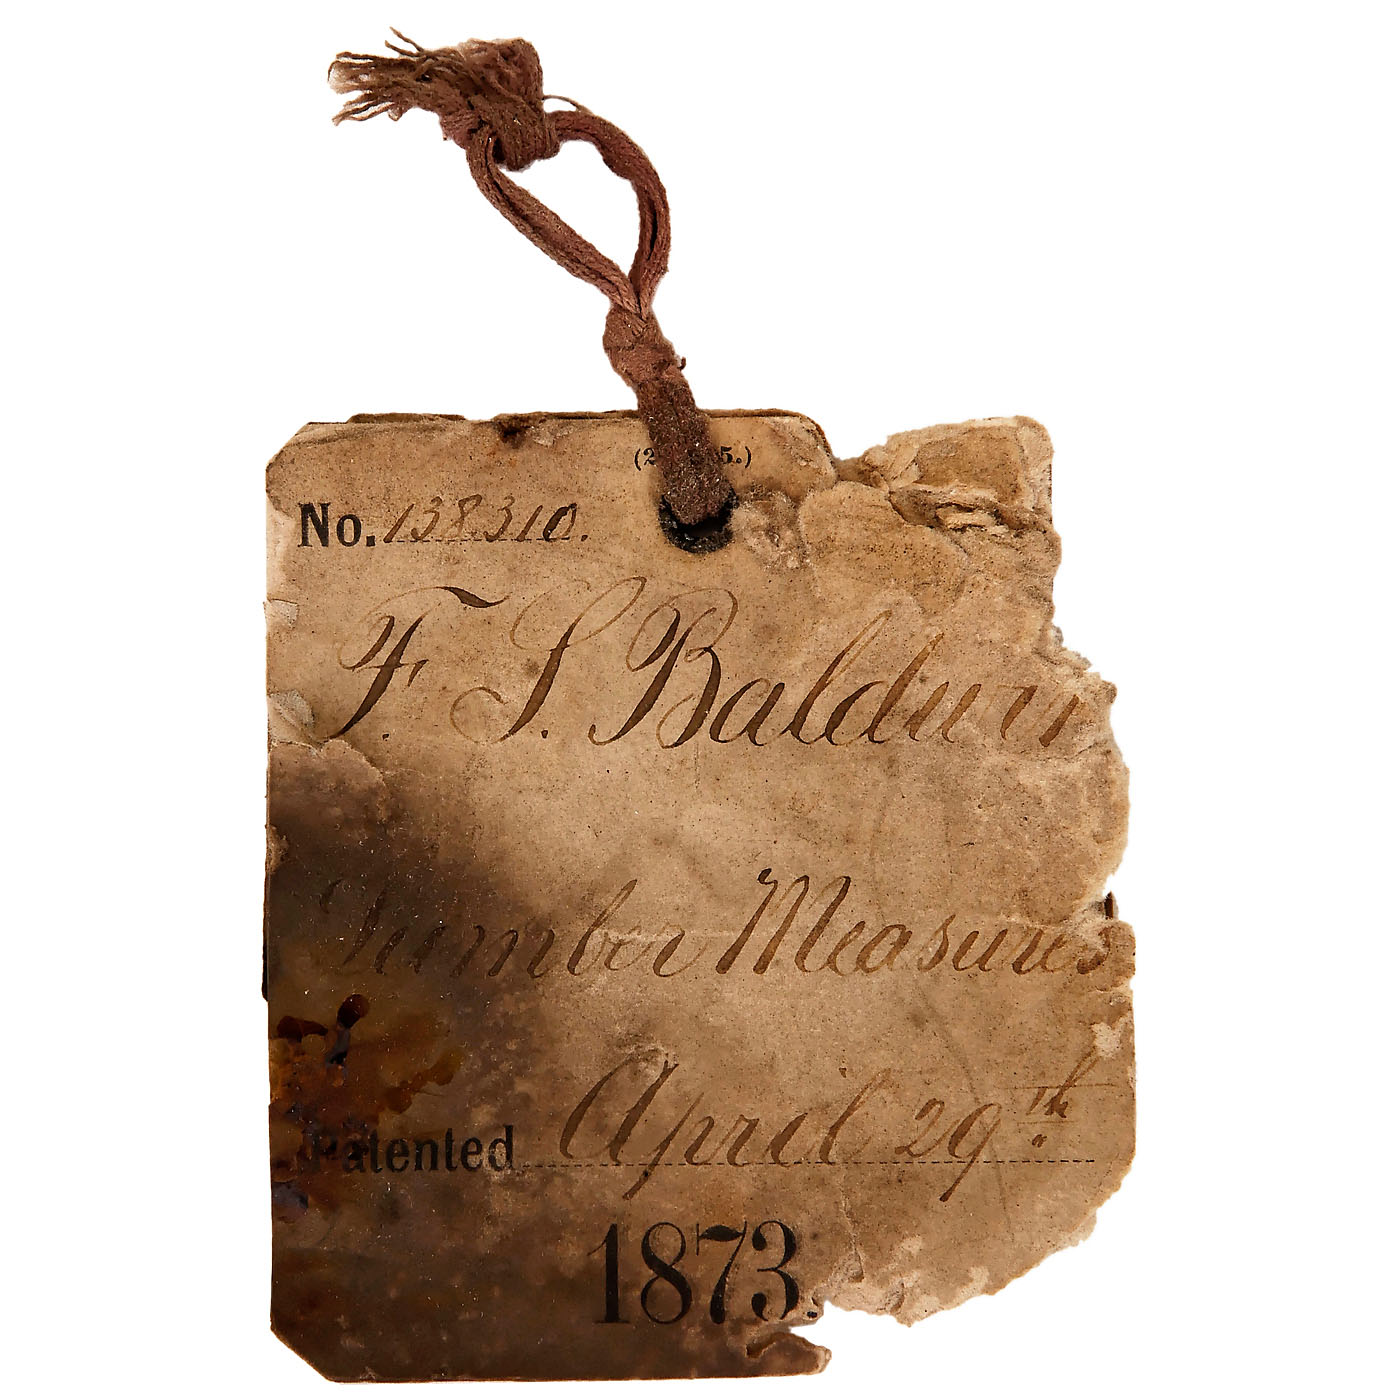 No. 138310.
F. S. Baldwin
Lumber Measures
Patented April 29th
1873.